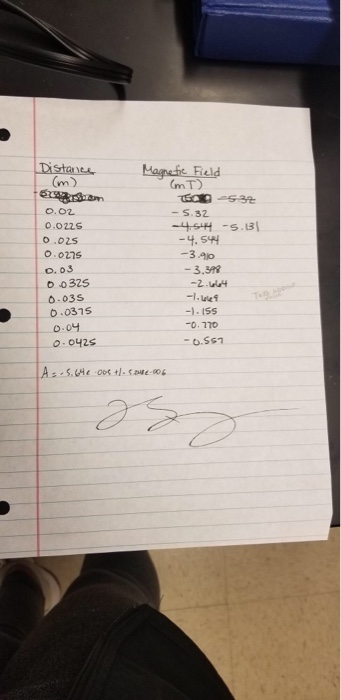 Distance Magnetic Field
(m) (mT)
-5.32
0.02 -5.32
0.0225 -4.544 -5.131
0.025 -4.544
0.0275 -3.910
0.03 -3.398
0.0325 -2.664
0.035 -1.669
0.0375 -1.155
0.04 -0.770
0.0425 -0.557
A = -5.64e-005 +/-